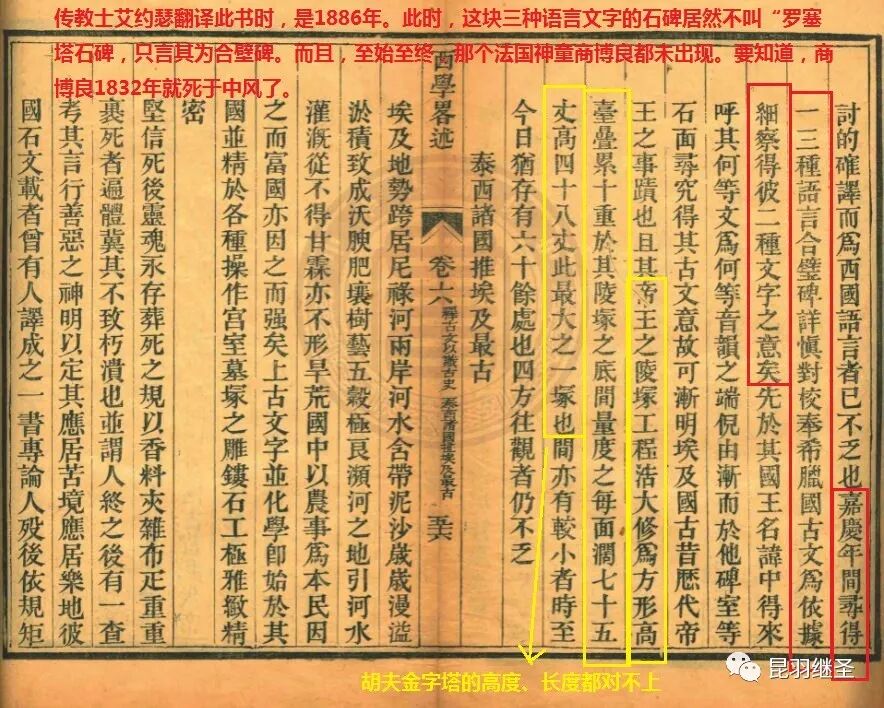 传教士艾约瑟翻译此书时，是1886年。此时，这块三种语言文字的石碑居然不叫“罗塞
塔石碑，只言其为合璧碑。而且，至始至终，那个法国神童商博良都未出现。要知道，商
博良1832年就死于中风了。
討的確譯而爲西國語言者已不乏也嘉慶年間尋得
一三種語言合璧碑詳慎對校奉希臘國古文爲依據
細察得彼二種文字之意矣先於其國王名諱中得來
呼其何等文爲何等音韻之端倪由漸而於他碑室等
石面尋究得其古文意故可漸明埃及國古昔歷代帝
王之事蹟也且其帝王之陵塚工程浩大修爲方形高
臺疊累十重於其陵塚之底間量度之每面濶七十五
丈高四十八丈此最大之一塚也間亦有較小者時至
今日猶存有六十餘處也四方往觀者仍不乏
泰西諸國推埃及最古
西學畧述
卷六
釋古文以識古史
泰西諸國推埃及最古
埃及地勢跨居尼祿河兩岸河水含帶泥沙歲歲漫溢
淤積致成沃腴肥壤樹藝五穀極艮瀕河之地引河水
灌溉從不得甘霖亦不形旱荒國中以農事爲本民因
之而富國亦因之而强矣上古文字並化學卽始於其
國並精於各種操作宫室墓塚之雕鏤石工極雅敏精
密
堅信死後靈魂永存葬死之規以香料夾雜布疋重重
裹死者遍體冀其不致朽潰也並謂人終之後有一查
考其言行善惡之神明以定其應居苦境應居樂地彼
國石文載者曾有人譯成之一書專論人殁後依規矩
胡夫金字塔的高度、长度都对不上
昆羽继圣